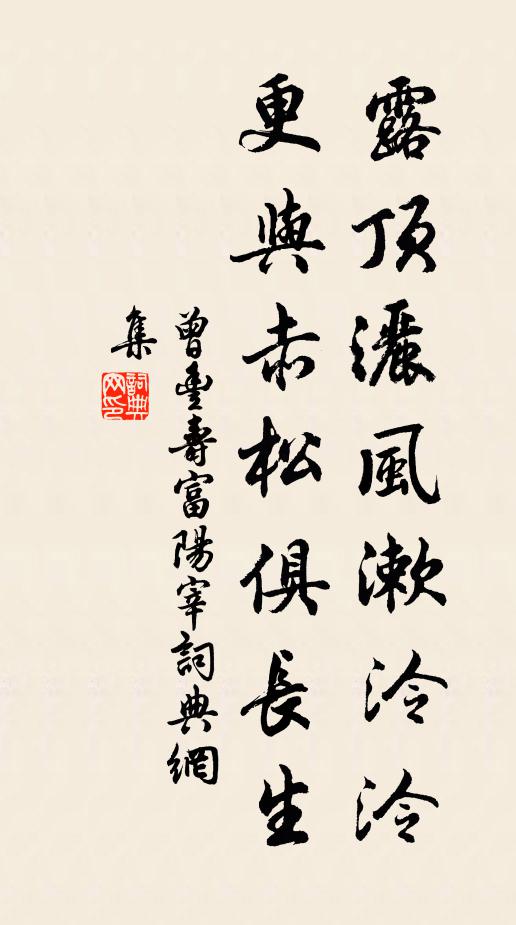 露頂灑風漱泠泠
更與赤松俱長生
曾豐壽富陽宰詞典網
集
詞典
网印